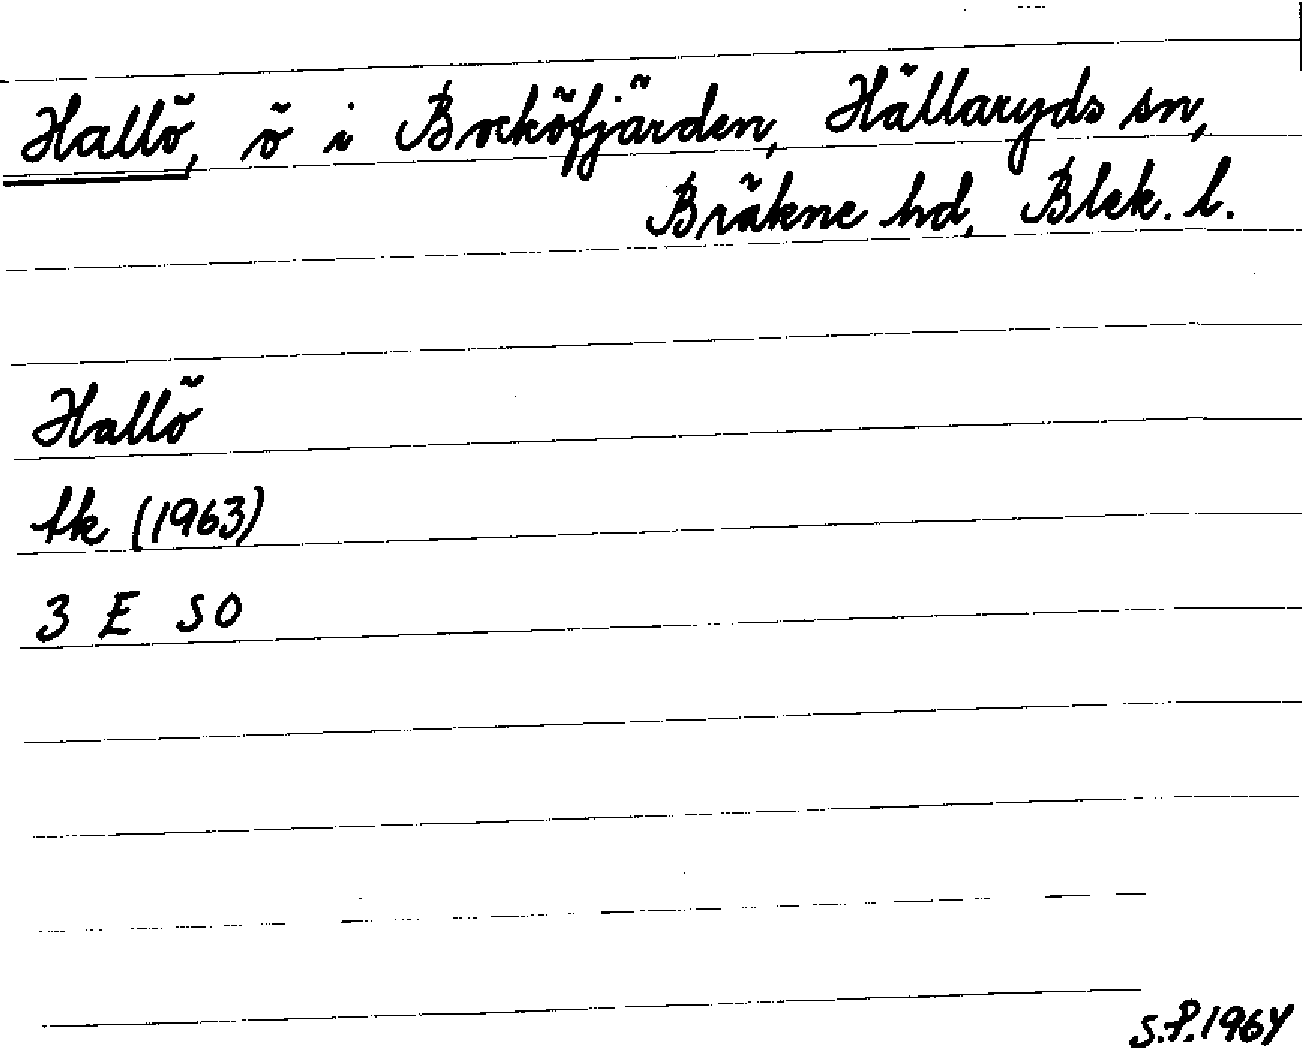 Hallö, ö i Bocköfjärden, Hällaryds sn,
Bräkne hd, Blek. l.
Hallö
tk (1963)
3 E SO
S.P. 1964